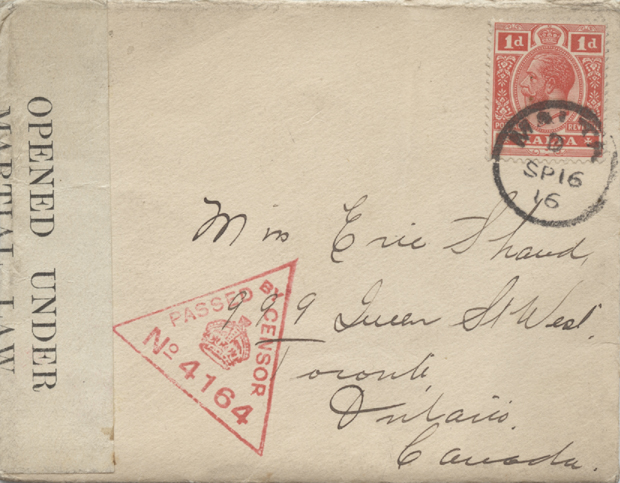 OPENED UNDER
MARTIAL LAW
1d 1d
MALTA
D
SP 16
16
Miss Erie Shand,
999 Queen St West.
Toronto,
Ontario.
Canada.
PASSED BY CENSOR
No 4164